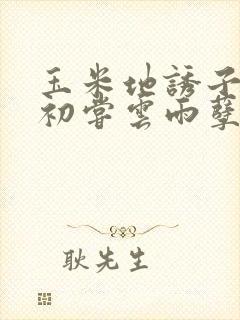 玉米地誘子
初嘗雲雨孽
耿先生